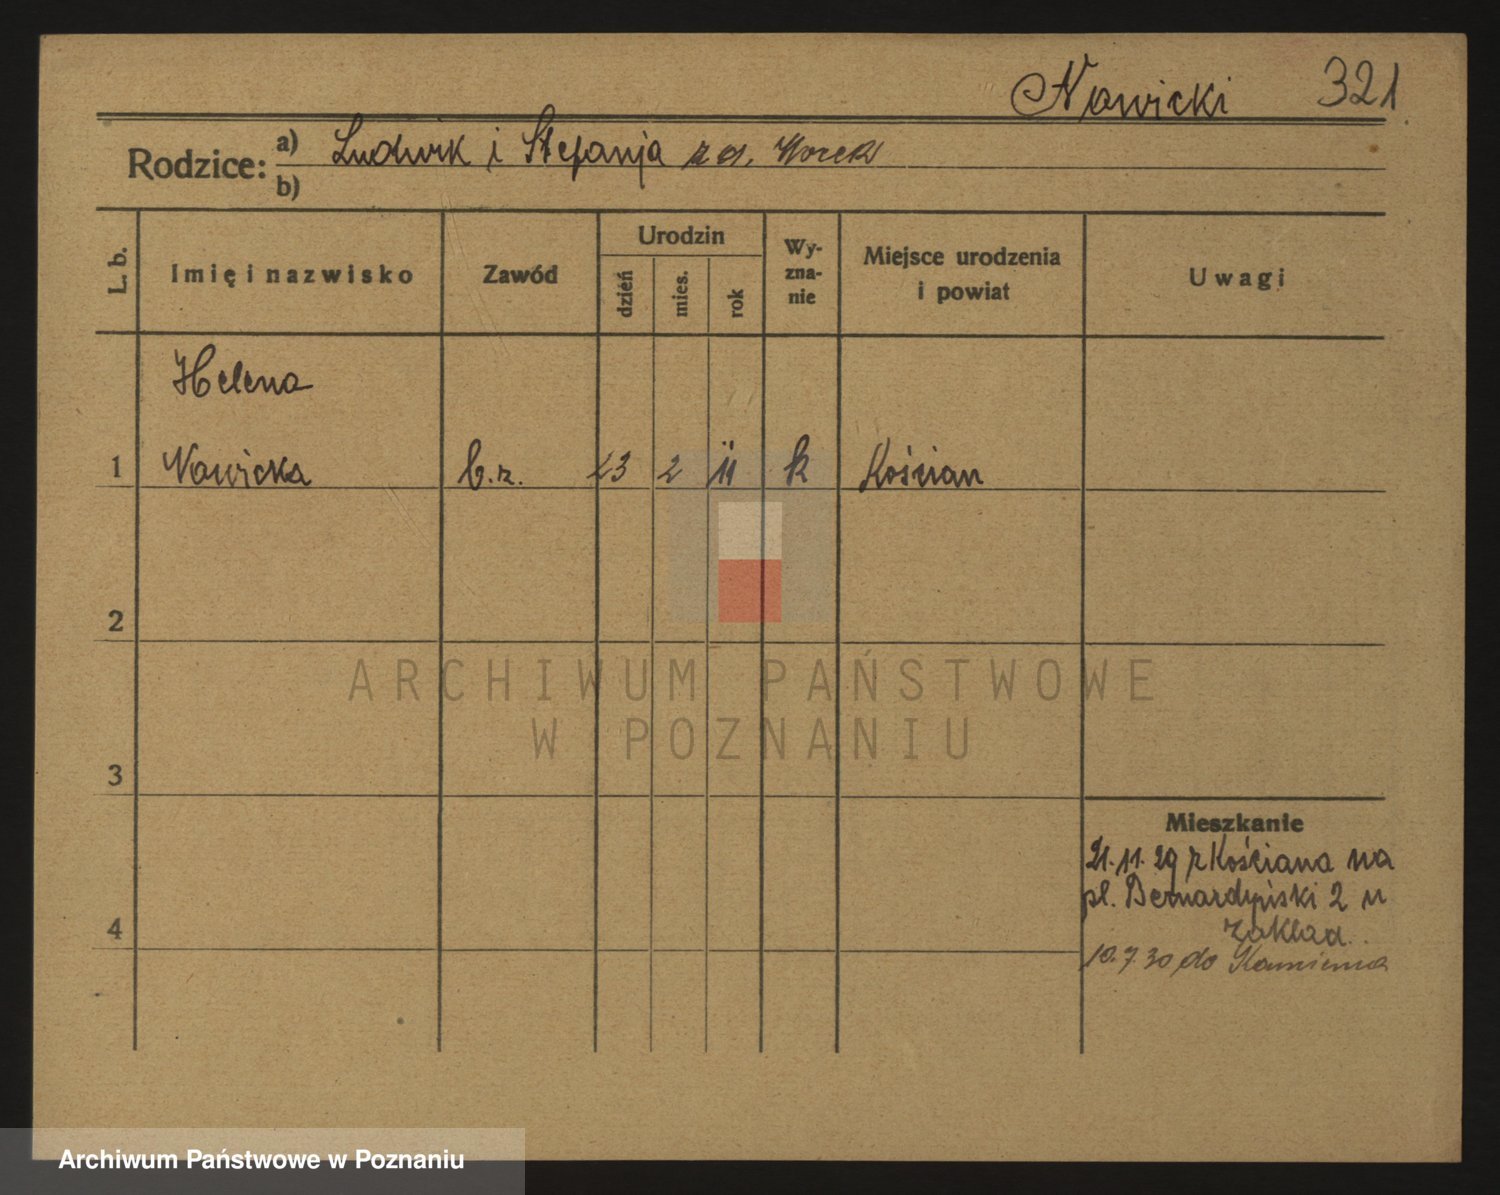 Nowicki 321
Rodzice: a) Ludwik i Stefanja zd.
b)
L. b. Imię i nazwisko Zawód Urodzin dzień mies. rok Wy-zna-nie Miejsce urodzenia i powiat Uwagi
Helena
1 Nowicka b.z. 23 2 11 k Kościan
2
ARCHIWUM PAŃSTWOWE
W POZNANIU
3
Mieszkanie
21.11.29 z Kościana na
pl. Bernardyński 2 u
zakład.
4
10.7.30 do
Archiwum Państwowe w Poznaniu